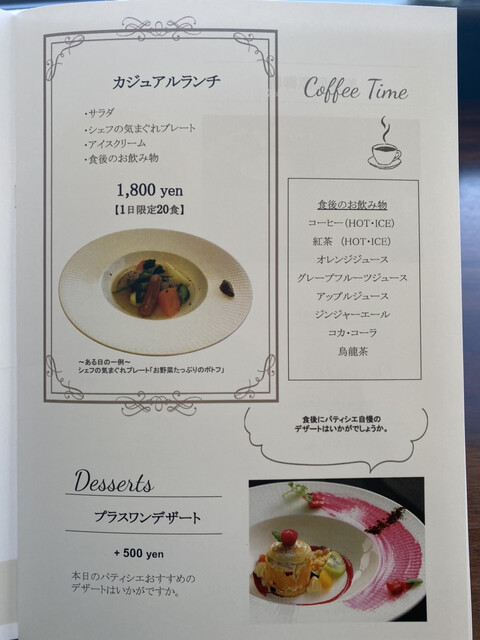 カジュアルランチ
・サラダ
・シェフの気まぐれプレート
・アイスクリーム
・食後のお飲み物
1,800 yen
【1日限定20食】
～ある日の一例～
シェフの気まぐれプレート「お野菜たっぷりのポトフ」
Coffee Time
食後のお飲み物
コーヒー（HOT・ICE）
紅茶　（HOT・ICE）
オレンジジュース
グレープフルーツジュース
アップルジュース
ジンジャーエール
コカ・コーラ
烏龍茶
食後にパティシエ自慢の
デザートはいかがでしょうか。
Desserts
プラスワンデザート
+ 500 yen
本日のパティシエおすすめの
デザートはいかがですか。